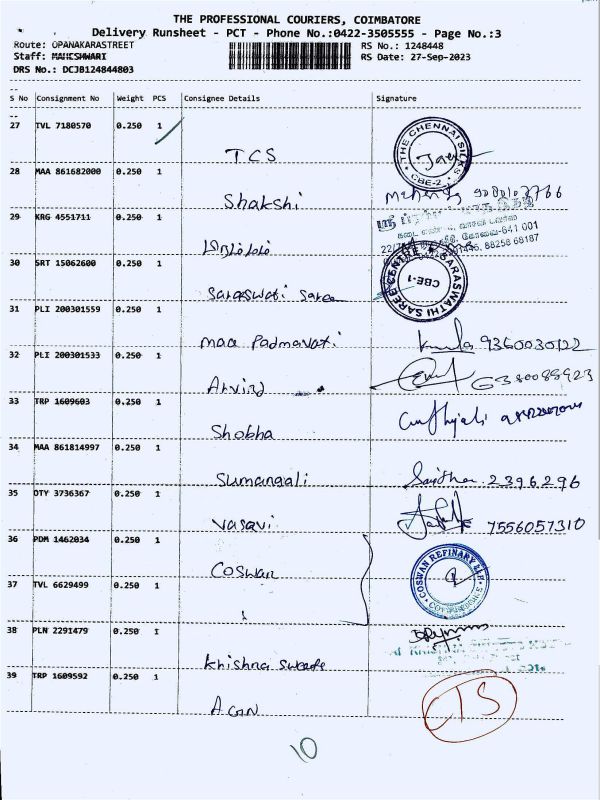 THE PROFESSIONAL COURIERS, COIMBATORE
Delivery Runsheet - PCT - Phone No.:0422-3505555 - Page No.:3
Route: OPANAKARASTREET RS No.: 1248448
Staff: MAHESHWARI RS Date: 27-Sep-2023
DRS No.: DCJB124844803
S No Consignment No Weight PCS Consignee Details Signature
27 TVL 7180570 0.250 1
THE CHENNAI SILKS
CBE-2
TCS
28 MAA 861682000 0.250 1
Shakshi
29 KRG 4551711 0.250 1
ஸ்ரீ
641 001
88258 68187
30 SRT 15062600 0.250 1
Saraswati Saree
SARASWATHI SAREE CENTRE
CBE-1
31 PLI 200301559 0.250 1
maa Padmavati 9360030122
32 PLI 200301533 0.250 1
Arvind
33 TRP 1609603 0.250 1
Shobha
34 MAA 861814997 0.250 1
Sumangali 2396296
35 OTY 3736367 0.250 1
Vasavi 7556057310
36 PDM 1462034 0.250 1
Coswan
COSWAN REFINARY LLP
37 TVL 6629499 0.250 1
38 PLN 2291479 0.250 1
Krishna Sweets
39 TRP 1609592 0.250 1
CTS
10